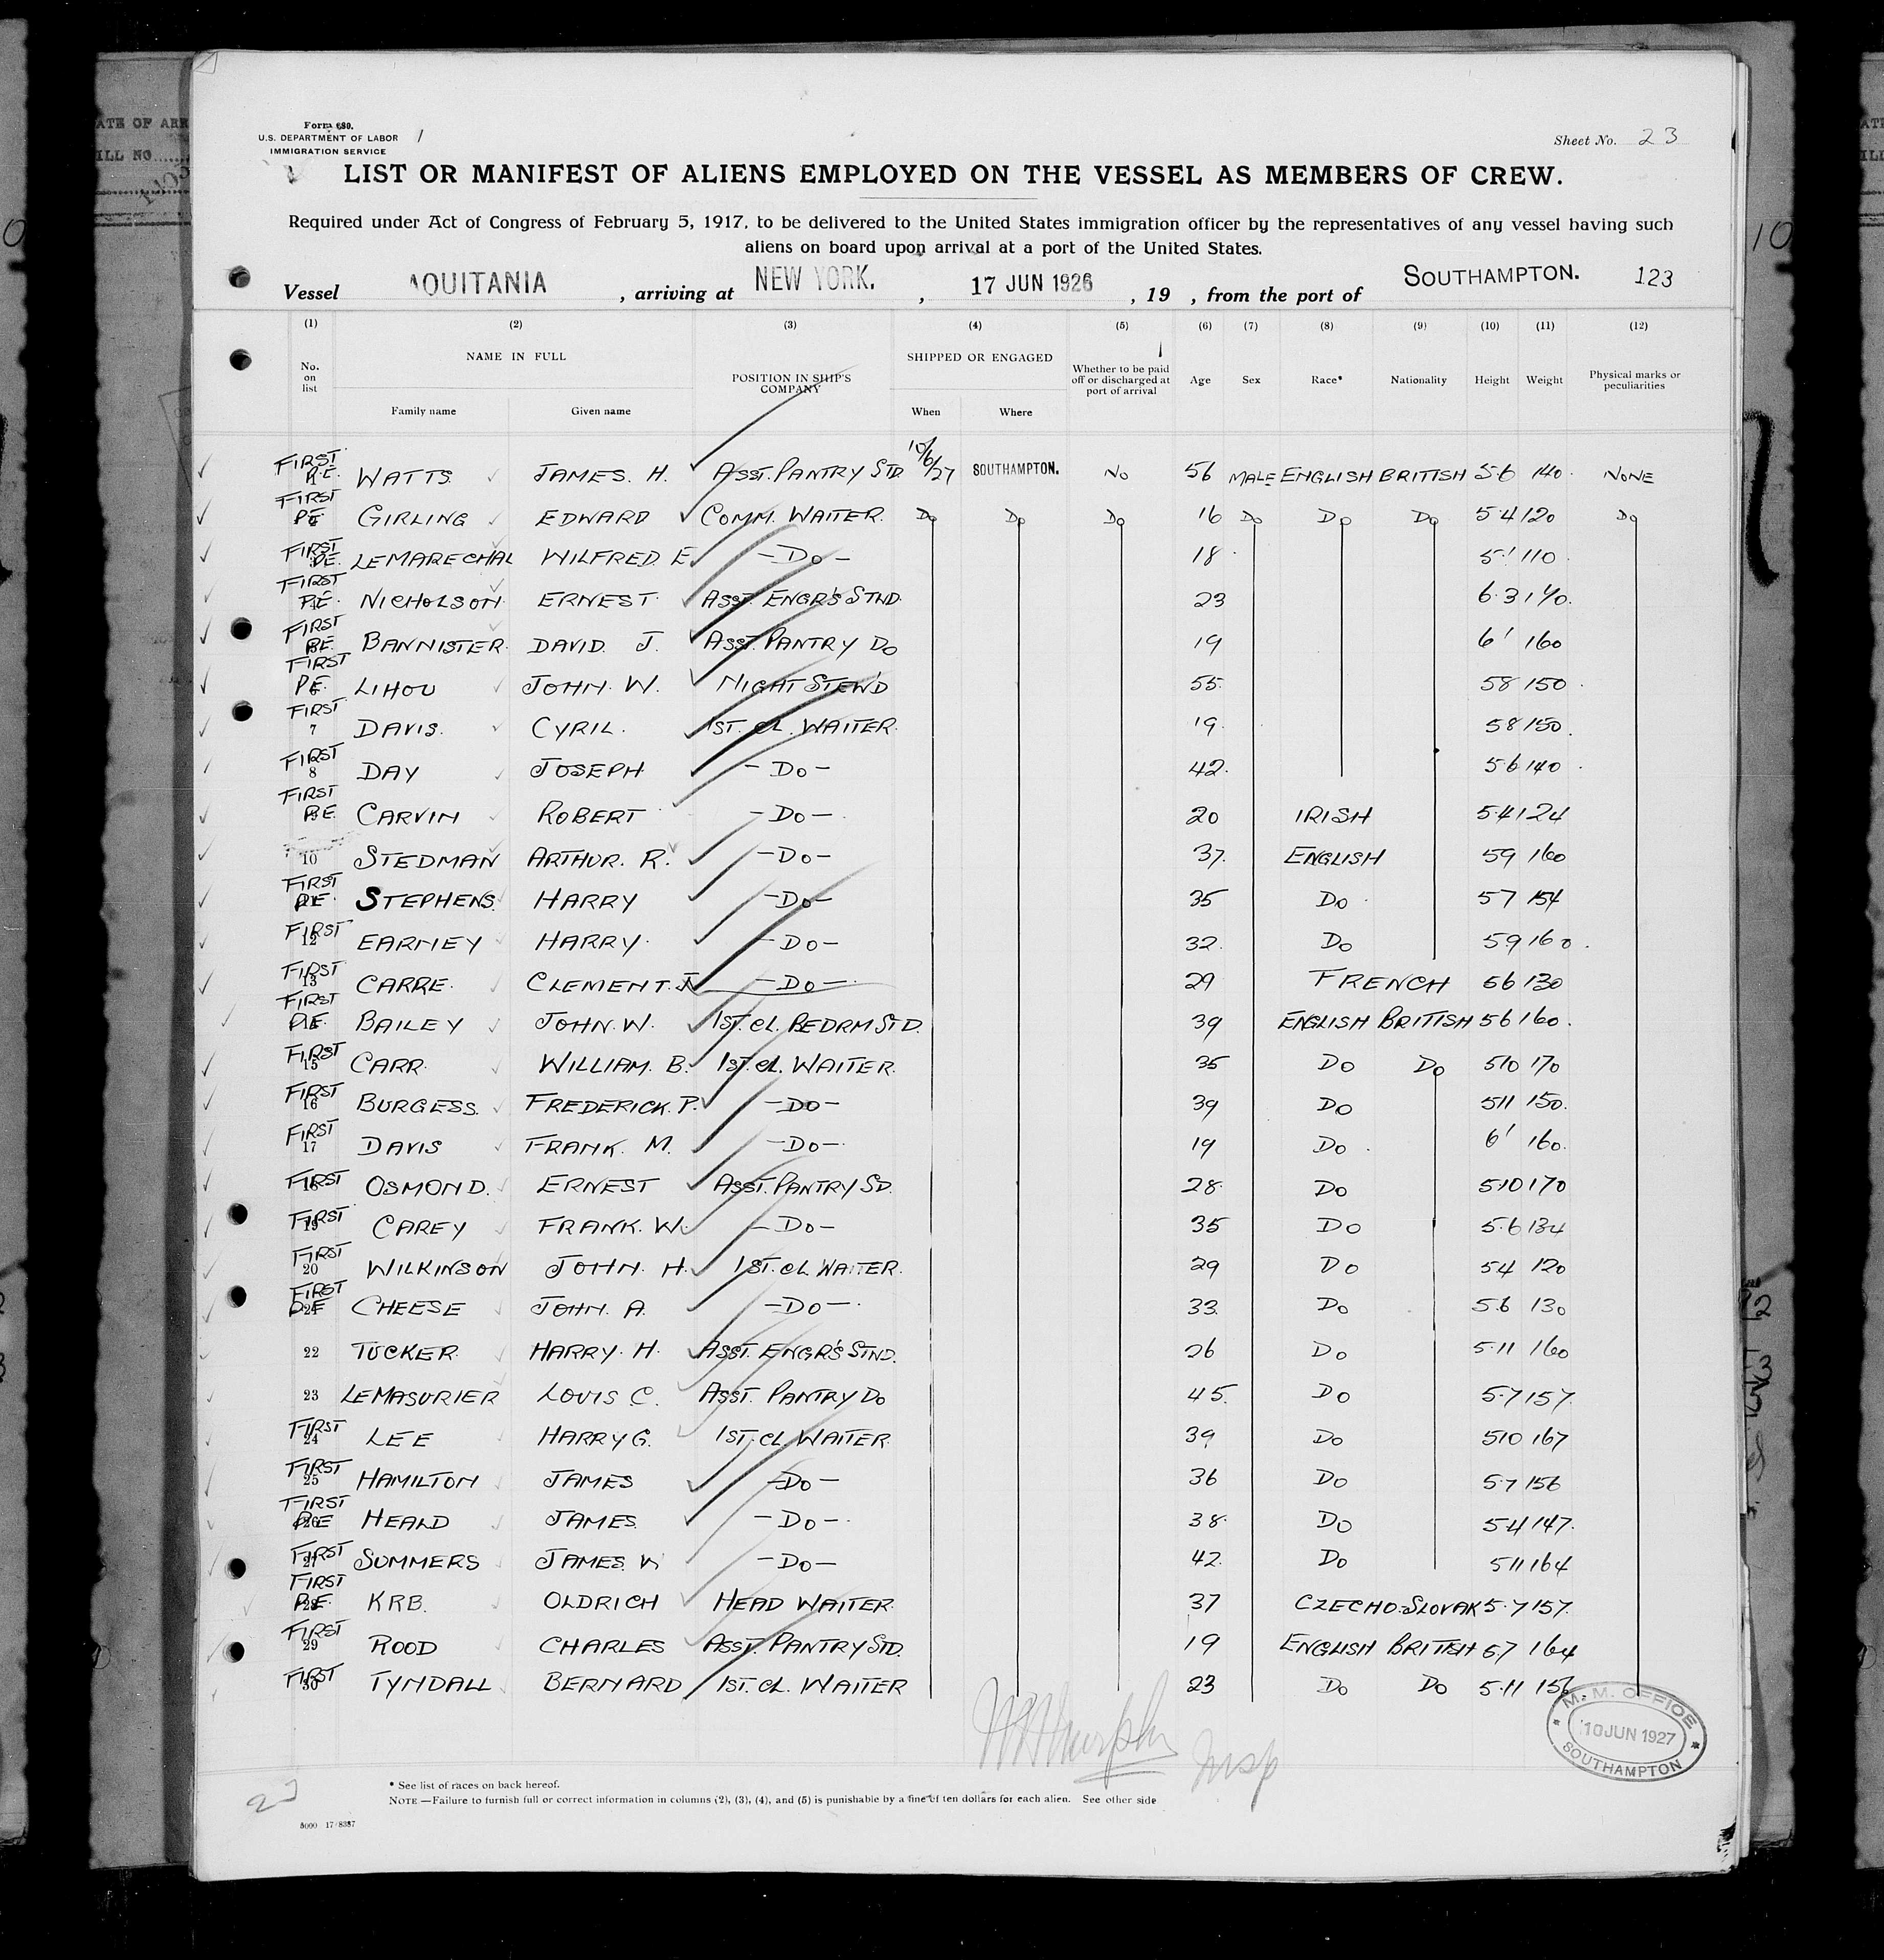 Form 680.
U.S. DEPARTMENT OF LABOR
IMMIGRATION SERVICE
Sheet No. 23
LIST OR MANIFEST OF ALIENS EMPLOYED ON THE VESSEL AS MEMBERS OF CREW.
Required under Act of Congress of February 5, 1917, to be delivered to the United States immigration officer by the representatives of any vessel having such
aliens on board upon arrival at a port of the United States.
Vessel AQUITANIA , arriving at NEW YORK. , 17 JUN 1926 , 19 , from the port of SOUTHAMPTON. 123
(1) (2) (3) (4) (5) (6) (7) (8) (9) (10) (11) (12)
No. on list NAME IN FULL Family name Given name POSITION IN SHIP'S COMPANY SHIPPED OR ENGAGED When Where Whether to be paid off or discharged at port of arrival Age Sex Race* Nationality Height Weight Physical marks or peculiarities
FIRST P.E. WATTS JAMES. H. ASST. PANTRY STD. 10/6/27 SOUTHAMPTON. NO 56 MALE ENGLISH BRITISH 5.6 140. NONE
FIRST P.E. GIRLING EDWARD COMM. WAITER. DO DO DO 16 DO DO DO 5.4 120 DO
FIRST P.E. LEMARECHAL WILFRED. E. - DO - 18 5.1 110
FIRST P.E. NICHOLSON ERNEST ASST. ENGR'S STWD. 23 6.3 170.
FIRST P.E. BANNISTER. DAVID. J. ASST. PANTRY DO 19 6' 160
FIRST P.E. LIHOU JOHN. W. NIGHT STEWD 55. 58 150
FIRST 7 DAVIS. CYRIL. 1ST. CL. WAITER. 19. 58 150.
FIRST 8 DAY JOSEPH - DO - 42. 5.6 140
FIRST P.E. CARVIN ROBERT - DO - 20 IRISH 5.4 124
10 STEDMAN ARTHUR. R. - DO - 37. ENGLISH 59 160
FIRST P.E. STEPHENS. HARRY - DO - 35 DO 57 154
FIRST 12 EARNEY HARRY. - DO - 32. DO 5.9 160.
FIRST 13 CARRE. CLEMENT. J. - DO - 29 FRENCH 56 130
FIRST P.E. BAILEY JOHN. W. 1ST. CL. BEDRM STD. 39 ENGLISH BRITISH 56 160.
FIRST 15 CARR. WILLIAM. B. 1ST. CL. WAITER. 35 DO DO 510 170
FIRST 16 BURGESS. FREDERICK. P. - DO - 39 DO 511 150.
FIRST 17 DAVIS FRANK. M. - DO - 19 DO 6' 160.
FIRST 18 OSMOND. ERNEST ASST. PANTRY SD. 28. DO 510 170
FIRST 19 CAREY FRANK. W. - DO - 35 DO 5.6 134
FIRST 20 WILKINSON JOHN. H. 1ST. CL. WAITER. 29 DO 5.4 120
FIRST P.E. CHEESE JOHN. A. - DO - 33. DO 5.6 130
22 TUCKER. HARRY. H. ASST. ENGR'S STWD. 26 DO 5.11 160
23 LEMASURIER LOUIS C. ASST. PANTRY DO 45. DO 5.7 157.
FIRST 24 LEE HARRY G. 1ST. CL. WAITER. 39 DO 510 167
FIRST 25 HAMILTON JAMES - DO - 36 DO 5.7 156
FIRST P.E. HEALD JAMES. - DO - 38. DO 5.4 147.
FIRST 27 SUMMERS JAMES. W. - DO - 42. DO 511 164
FIRST P.E. KRB. OLDRICH HEAD WAITER 37 CZECHO-SLOVAK 5.7 157.
FIRST 29 ROOD CHARLES ASST. PANTRY STD. 19 ENGLISH BRITISH 5.7 164
FIRST 30 TYNDALL BERNARD 1ST. CL. WAITER 23 DO DO 5.11 156
Murphy Insp
M. M. OFFICE
10 JUN 1927
SOUTHAMPTON
* See list of races on back hereof.
NOTE—Failure to furnish full or correct information in columns (2), (3), (4), and (5) is punishable by a fine of ten dollars for each alien. See other side